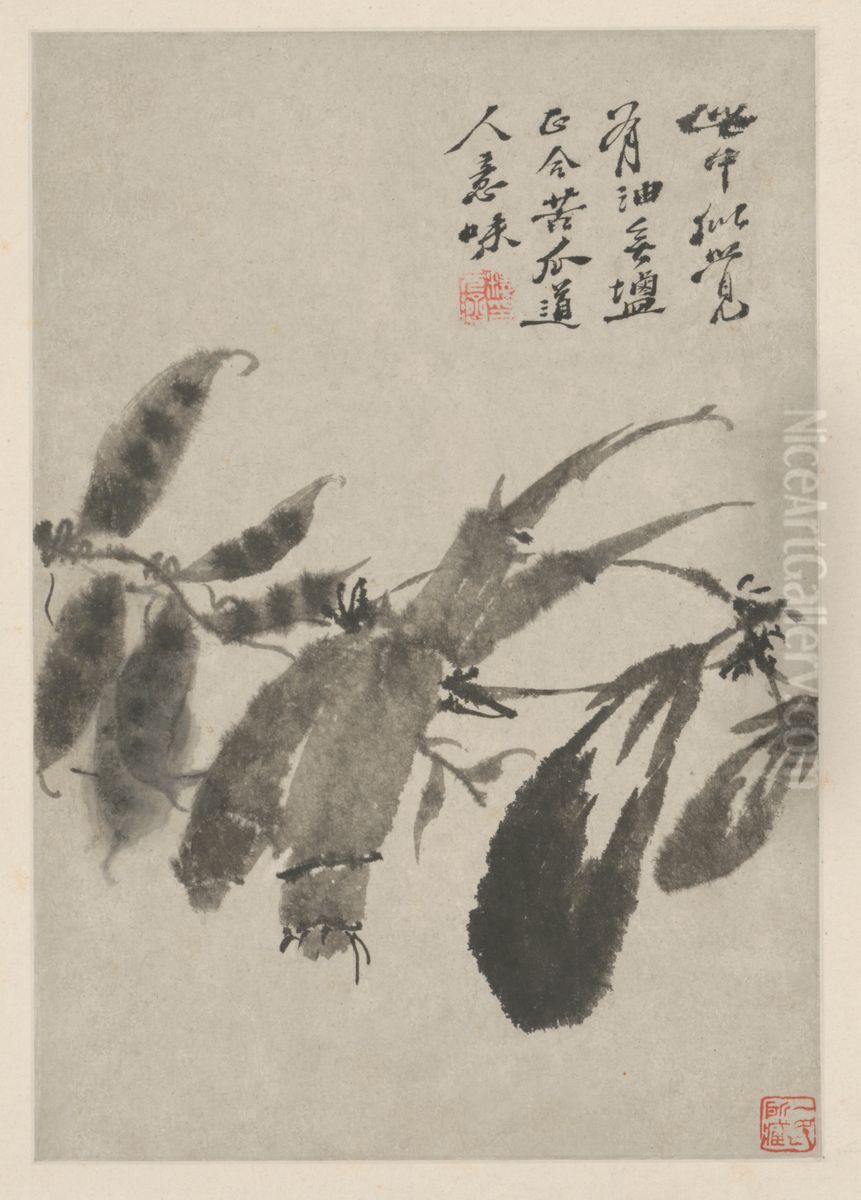 此中似覺
有油無鹽
正合苦瓜道
人意味
NiceArtGallery.com